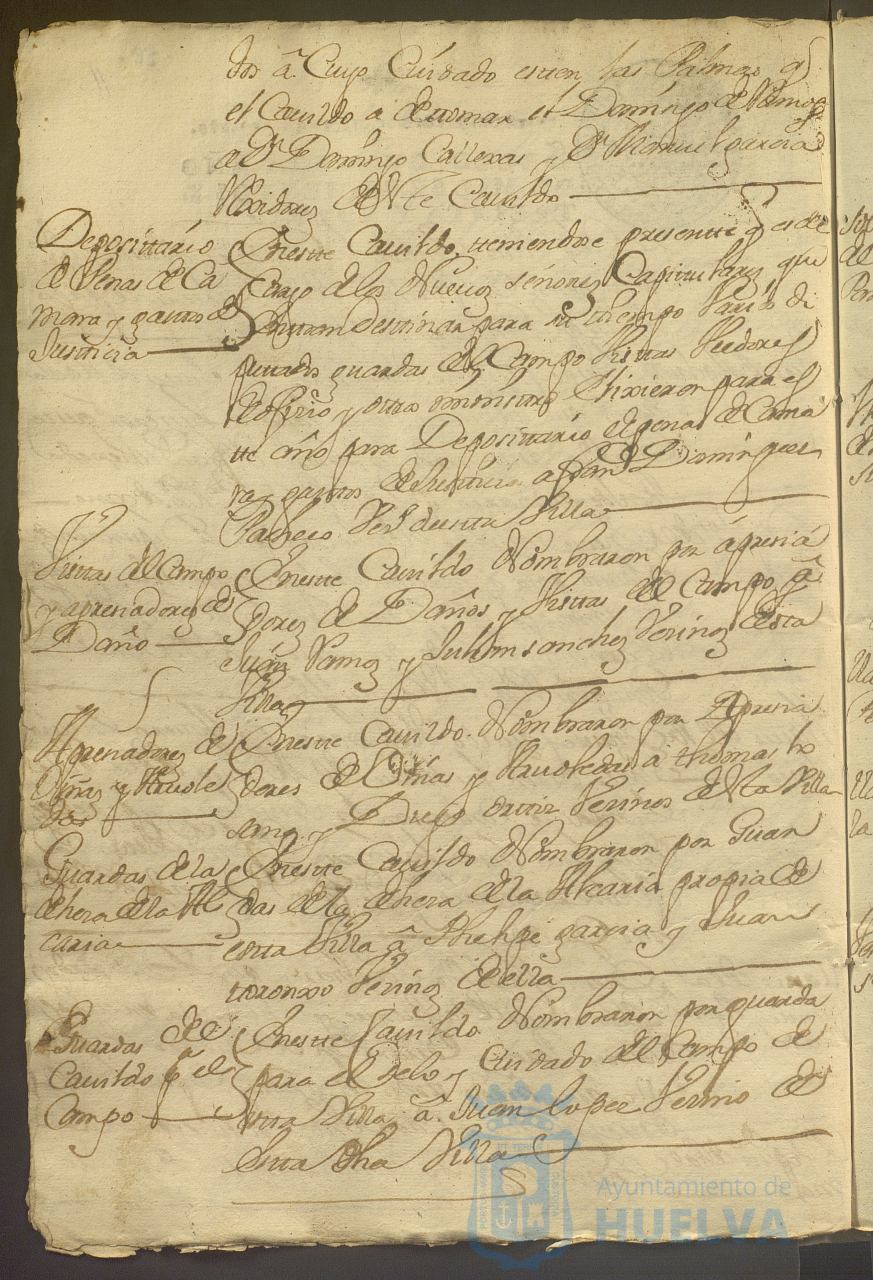 dos â Cuyo Cuidado esten las Palmas q̃
el Cavildo a de tomar el Domingo de Ramos
a Dn. Domingo Callexas y Dn. Manuel garcia
Rexidores de este Cavildo
Depositario
de Penas de Ca
mara y gastos de
Justicia
En este Cavildo, teniendose presente q̃ es de
Cargo de los Nuevos señores Capitulares que
Entran Destinar para su tiempo Varios di
putados guardas del Campo Vistas Veedores
de ofisio y otro ministro Elixieron para es
te año para Depositario de penas de Cama
ra y gastos de Justicia a Dominguez
Pacheco Vezo. de esta Villa
Vistas del Campo
y apresiadores de
Daño
En este Cavildo Nombraron por âpresia
dores de Daños y Vistas del Campo â
Juan Ramos y Julian sanchez Vecinos de esta
Villa
Apresiadores de
Viñas y Arvole
das
En este Cavildo Nombraron por Apresia
dores de Viñas y Arvoledas a thomas lo
sano y Diego ortiz Vecinos de esta Villa
Guardas de la
dehesa de la Al
caria
En este Cavildo Nombraron por Guar
das de la dehesa de la Alcaria propia de
esta Villa â Phelipe garcia y Juan
toronxo Vecinos de ella
Guardas del
Cavildo pa. el
Campo
En este Cavildo Nombraron por guarda
para el Zelo y Cuidado del Campo de
esta Villa â Juan lopez Vecino de
esta dha Villa
Ayuntamiento de
HUELVA